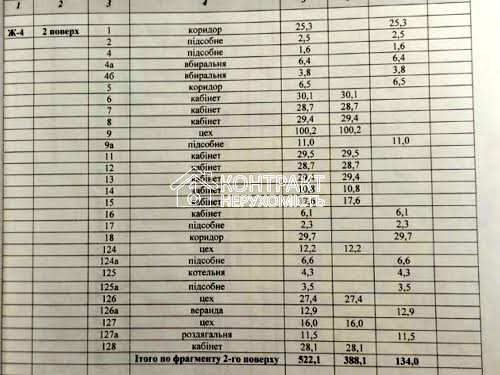 1 2 3 4
Ж-4 2 поверх 1 коридор 25,3 25,3
2 підсобне 2,5 2,5
4 підсобне 1,6 1,6
4а вбиральня 6,4 6,4
4б вбиральня 3,8 3,8
5 коридор 6,5 6,5
6 кабінет 30,1 30,1
7 кабінет 28,7 28,7
8 кабінет 29,4 29,4
9 цех 100,2 100,2
9а підсобне 11,0 11,0
11 кабінет 29,5 29,5
12 кабінет 28,7 28,7
13 кабінет 29,4 29,4
14 кабінет 10,8 10,8
15 кабінет 17,6 17,6
КОНТРАКТ
НЕРУХОМІСТЬ
16 кабінет 6,1 6,1
17 підсобне 2,3 2,3
18 коридор 29,7 29,7
124 цех 12,2 12,2
124а підсобне 6,6 6,6
125 котельня 4,3 4,3
125а підсобне 3,5 3,5
126 цех 27,4 27,4
126а веранда 12,9 12,9
127 цех 16,0 16,0
127а роздягальня 11,5 11,5
128 кабінет 28,1 28,1
Ітого по фрагменту 2-го поверху 522,1 388,1 134,0